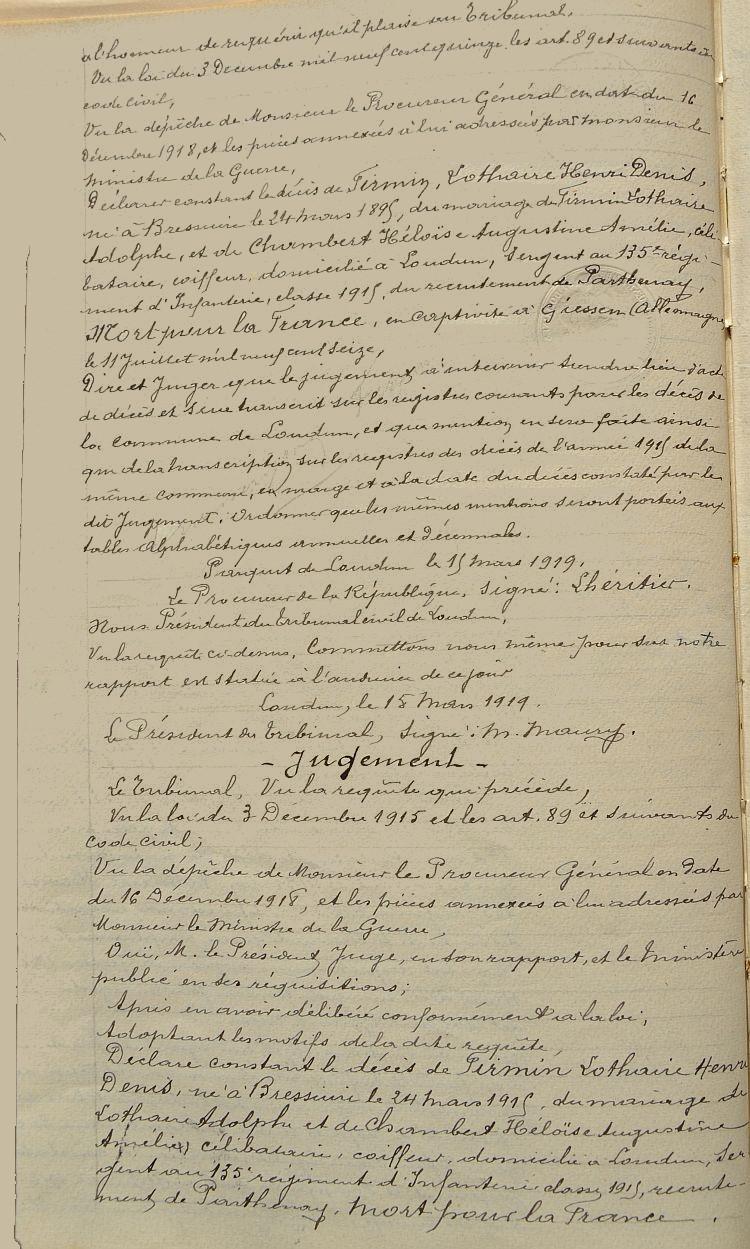 a l'honneur de requérir qu'il plaise au Tribunal,
Vu la loi du 3 Décembre mil neuf cent quinze, les art. 89 et suivants du
code civil,
Vu la dépêche de Monsieur le Procureur Général en date du 16
Décembre 1918, et les pièces annexées à lui adressées par Monsieur le
Ministre de la Guerre,
Déclarer constant le décès de Firmin, Lothaire Henri Denis,
né à Bressuire le 24 Mars 1895, du mariage de Firmin Lothaire
Adolphe, et de Chambert Héloïse Augustine Amélie, céli-
bataire, coiffeur, domicilié à Loudun, Sergent au 135e régi-
ment d'Infanterie, classe 1915, du recrutement de Parthenay,
Mort pour la France, en captivité à Giessen (Allemagne)
le 11 Juillet mil neuf cent seize,
Dire et Juger que le jugement à intervenir tiendra lieu d'acte
de décès et sera transcrit sur les registres courants pour les décès de
la commune de Loudun, et que mention en sera faite ainsi
que de la transcription sur les registres des décès de l'année 1915 de la
même commune, en marge et à la date du décès constaté par le
dit Jugement, Ordonner que les mêmes mentions seront portées aux
tables Alphabétiques annuelles et décennales.
Parquet de Loudun le 15 Mars 1919.
Le Procureur de la République, Signé : Lhéritier.
Nous Président du Tribunal civil de Loudun,
Vu la requête ci-dessus, Commettons nous même pour sur notre
rapport est statué à l'audience de ce jour
Loudun, le 15 Mars 1919.
Le Président du Tribunal, Signé : M. Maury.
- Jugement -
Le Tribunal, Vu la requête qui précède,
Vu la loi du 3 Décembre 1915 et les art. 89 et suivants du
code civil ;
Vu la dépêche de Monsieur le Procureur Général en date
du 16 Décembre 1918, et les pièces annexées à lui adressées par
Monsieur le Ministre de la Guerre,
Ouï, M. le Président, Juge, en son rapport, et le Ministère
public en ses réquisitions ;
Après en avoir délibéré conformément à la loi ;
Adoptant les motifs de la dite requête,
Déclare constant le décès de Firmin Lothaire Henri
Denis, né à Bressuire le 24 Mars 1915, du mariage de
Lothaire Adolphe et de Chambert Héloïse Augustine
Amélie, célibataire, coiffeur, domicilié à Loudun, Ser-
gent au 135e régiment d'Infanterie classe 1915, recrute-
ment de Parthenay, Mort pour la France.